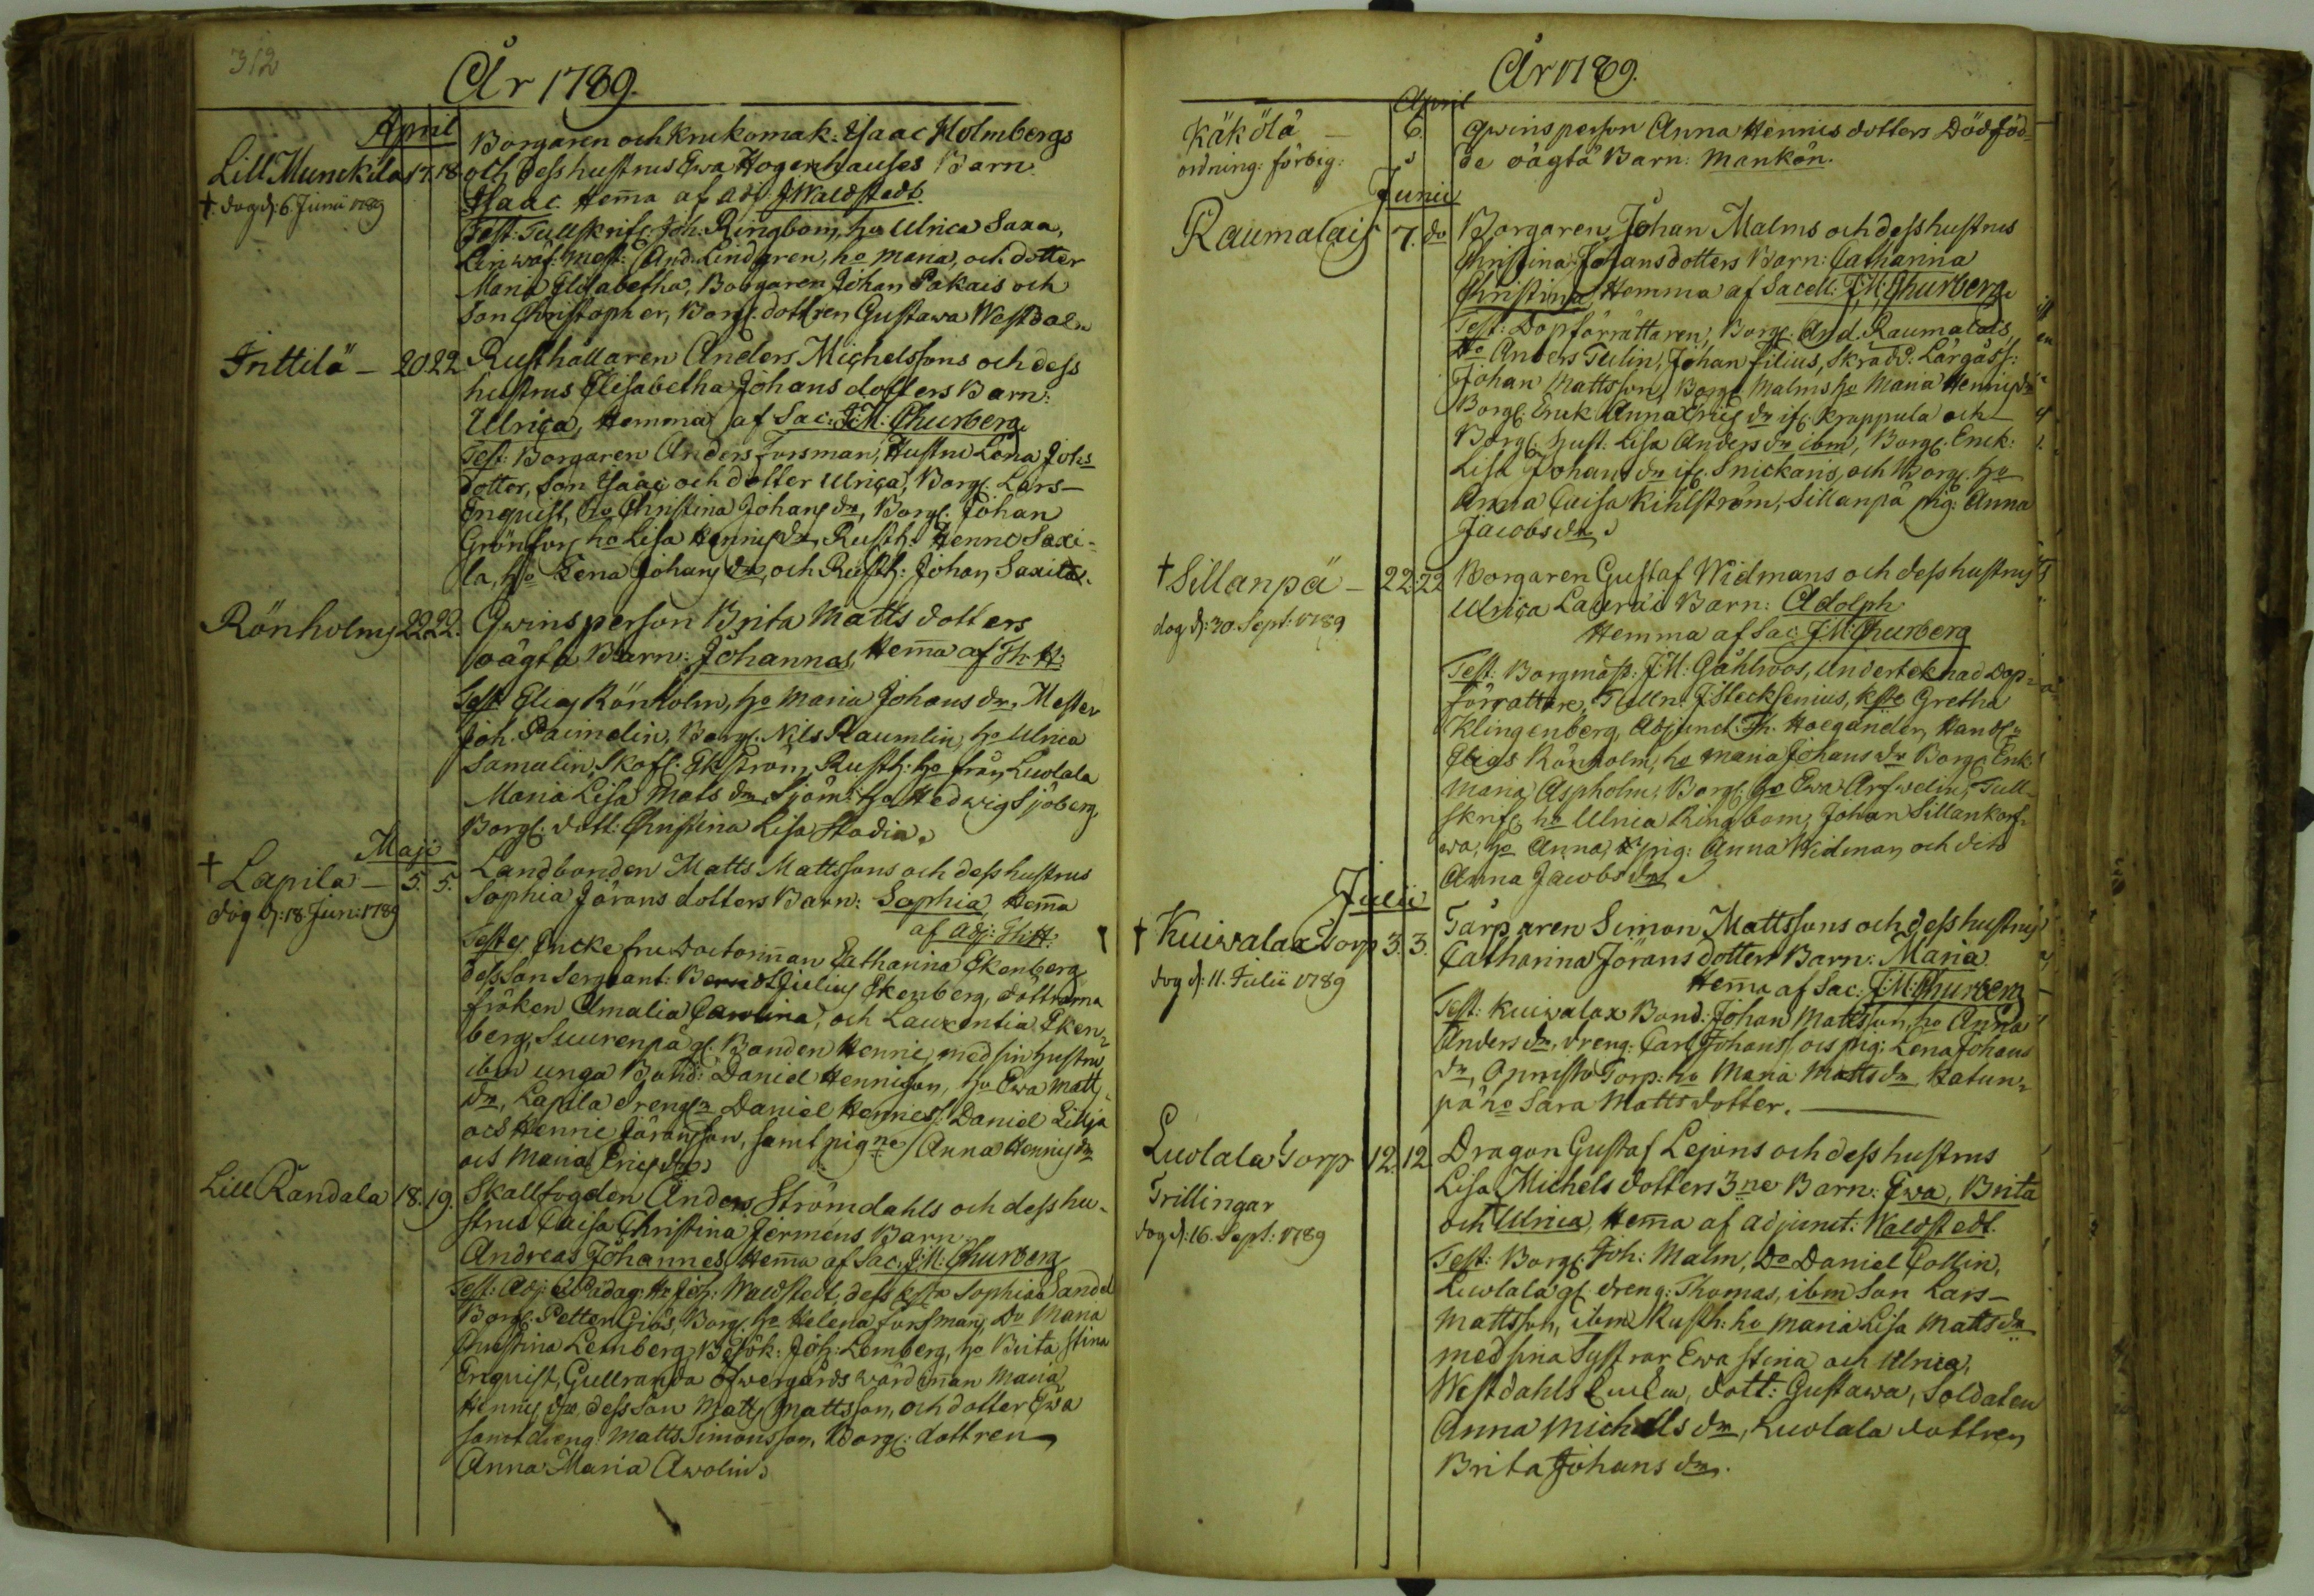 312
År 1789.
April
Lill Munckila 17. 18.
†. dog d: 6. Junii 1789
Borgaren och Krukomak: Isaac Holmbergs
och dess hustrus Ewa Hogenhauses Barn
Isaac. Hem̄a af Adj: J Waldstedt.
Test: Tullskrif: Joh: Ringbom, ho Ulrica Saxa,
Linwäf: Mest: And: Lindgren, ho Maria, och dotter
Maria Elisabetha, Borgaren Johan Pakais och
Son Christopher, Borg: dottren Gustawa Westdal
Inttilä — 20 22
Rusthållaren Anders Michelssons och dess
hustrus Elisabetha Johans dotters Barn:
Ulrica, Hemma af Sac: J:M: Churberg
Test: Borgaren Anders Forsman, Hustru Lena Johs
dotter, Son Isaac och dotter Ulrica, Borg: Lars
Enquist, ho Christina Johans dr, Borg: Johan
Grönfors ho Lisa Hennis dr, Rusth: Henric Saxi-
la, ho Lena Johans dr, och Rusth: Johan Saxila.
Rönholms 22 22.
Qwinsperson Brita Matts dotters
oägta Barn: Johannes, Hem̄a af Th: H:
Test: Elias Rönholm, ho Maria Johans dr, Mester
Joh: Paimelin, Borg: Nils Raumlin, ho Ulrica
Samulin, Skof: Ekström, Rusth: ho från Luolala
Maria Lisa Mats dr, Sjöm: ho Hedwig Sjöberg
Borg: dott: Christina Lisa Stadia.
Maji
† Lapila — 5. 5.
dog d: 18. Jun: 1789
Landbonden Matts Mattssons och dess hustrus
Sophia Jörans dotters Barn: Sophia, Hem̄a
af Adj: Th: H:
Testes Encke fru Doctorin̄an Catharina Ekenberg
dess Son Sergeant: Julius Ekenberg, döttrarna
fröken Amalia Carolina, och Laurentia Eken-
berg, Suurenpä gl: Bonden Henric, med sin hustru
ibm unga Bond: Daniel Hennisson, ho Ewa Matts
dr, Lapila drengr Daniel Henriss: Daniel Lillja
och Henric Jöransson, samt pigne Anna Hennis dr
och Maria Erics dr
Lill Randala 18. 19.
Skallfogden Anders Strömdahls och dess hu-
strus Caisa Christina Jermens Barn
Andreas Johannes, Hem̄a af Sac: J:M: Churberg
Test: Adj: Joh: Waldstedt, dess Sophia Sandel
Borg: Petter Giös, Borg: ho Helena Forsman, Do Maria
Christina Lemberg, Besök: Joh: Lemberg, ho Brita Stina
Enquist, Gullranda Öfwergårds wärdin̄an Maria
Hennis dr, dess Son Matts Mattsson, och dotter Ewa
samt dreng: Matts Simonsson, Borg: dottren
Anna Maria Awolin.
År 1789.
April
Käkölä — 6.
ordning: förbig:
Qwinsperson Anna Hennis dotters Dödföd-
de oägta Barn: Mankön.
Junii
Raumalais 7. do
Borgaren Johan Malms och dess hustrus
Christina Johansdotters Barn: Catharina
Christina, Hemma af Sacell: J:M: Churberg
Test: Dopförrättaren, Borg: And: Raumalais,
Do Anders Tulin, Johan Filius, Skrädd: Lärgåss:
Johan Mattsson, Borg: Malms ho Maria Hennis dr
Borg: Enck Anna Erics dr if: Krappula och
Borg: hust: Lisa Anders dr ibm, Borg: Enck:
Lisa Johans dr if: Snickaris, och Borg: ho
Anna Caisa Kihlström, Sillanpä pig: Anna
Jacobs dr
† Sillanpä — 22 22
dog d: 30. Sept: 1789
Borgaren Gustaf Widmans och dess hustrus
Ulrica Laurai Barn: Adolph
Hemma af Sac: J:M: Churberg
Test: Borgmäst: J:M: Gåhlnoos, Underteknad Dop-
förrättare, Tulln: J: Stecksenius, Gretha
Klingenberg, Adjunct: Th: Hoegander, Handl:
Elias Rönholm, ho Maria Johans dr Borg: Enk:
Maria Aspholm, Borg: ho Ewa Arfwelin, Tull-
skrif: ho Ulrica Ringbom, Johan Sillankorf-
wa, ho Anna, pig: Anna Widman och dito
Anna Jacobs dr
Julii
† Kuiwalax Torp 3. 3.
dog d: 11. Julii 1789
Tårparen Simon Mattssons och dess hustrus
Catharina Jörans dotters Barn: Maria
Hem̄a af Sac: J:M: Churberg
Test: Kuiwalax Bond: Johan Mattsson, ho Anna
Anders dr, dreng: Carl Johans: och pig: Lena Johans
dr, Opnisto Torp: ho Maria Matts dr, Katun-
pä ho Sara Mattsdotter.
Luolala Torp 12. 12.
Trillingar
dog d: 16. Sept: 1789
Dragon Gustaf Lejons och dess hustrus
Lisa Michels dotters 3ne Barn: Ewa, Brita
och Ulrica, Hem̄a af Adjunct: Waldstedt
Test: Borg: Joh: Malm, Do Daniel Collin,
Luolala gl: dreng: Thomas, ibm Son Lars
Mattsson, ibm Rusth: ho Maria Lisa Matts dr
med sina Systrar Ewa Stina och Ulrica,
Westdahls dott: Gustawa, Soldaten
Anna Michells dr, Luolala dottren
Brita Johans dr.